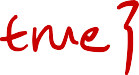 true }